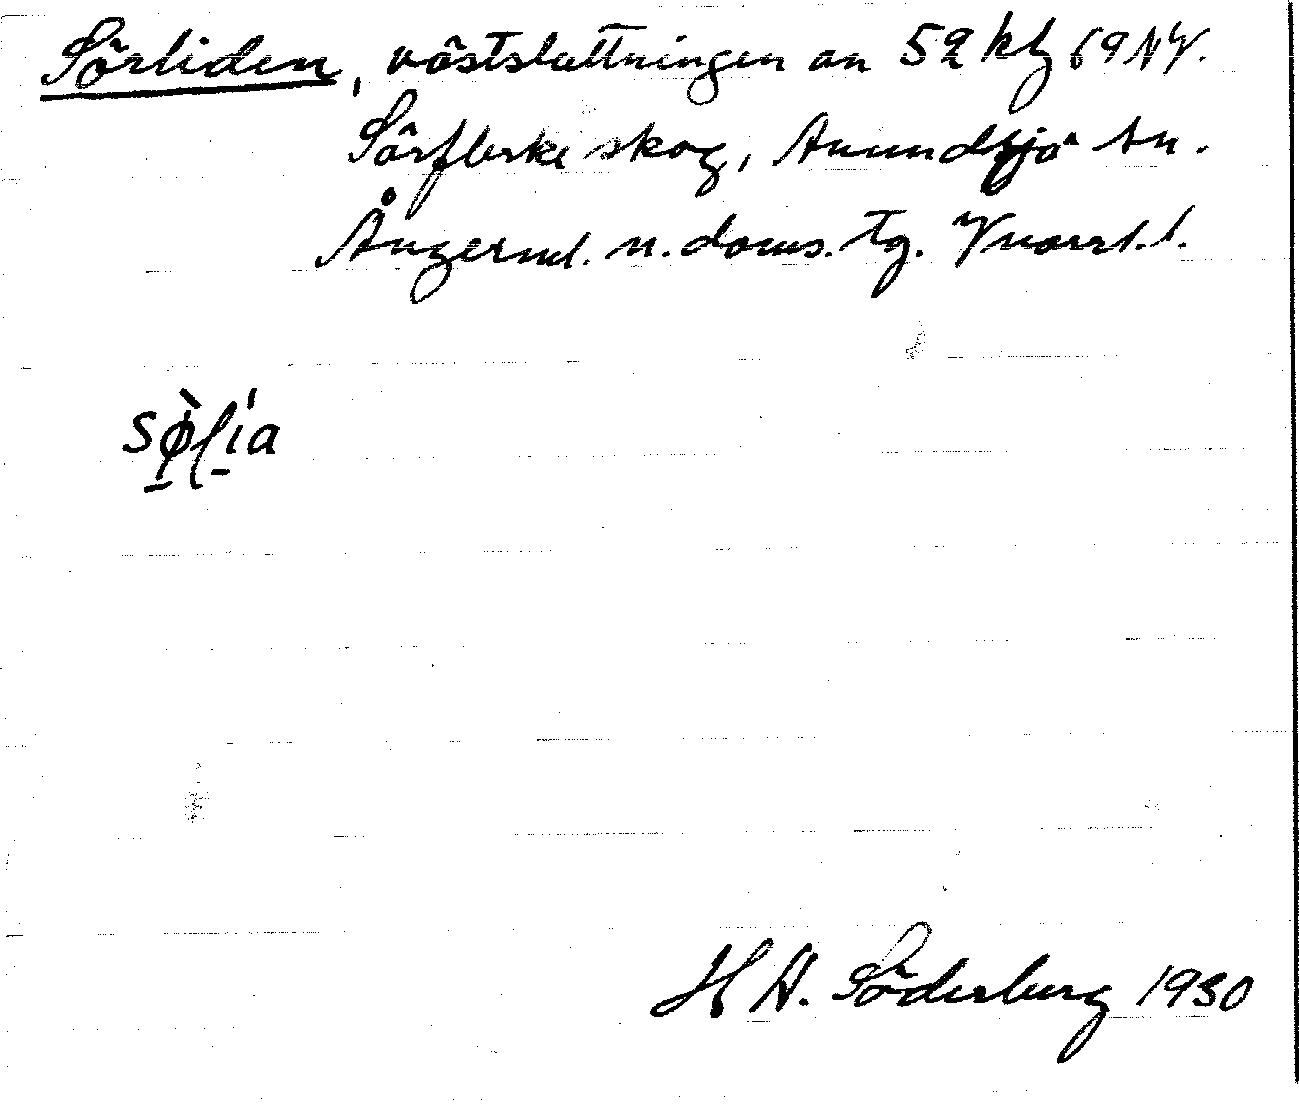 Sörliden, västsluttningen av 52 kbl 69 NV.
Sörflärke skog, Anundsjö sn.
Ångerml. n. doms. tg. Vnorrl. l.
sø̀lía
H A. Söderberg 1930